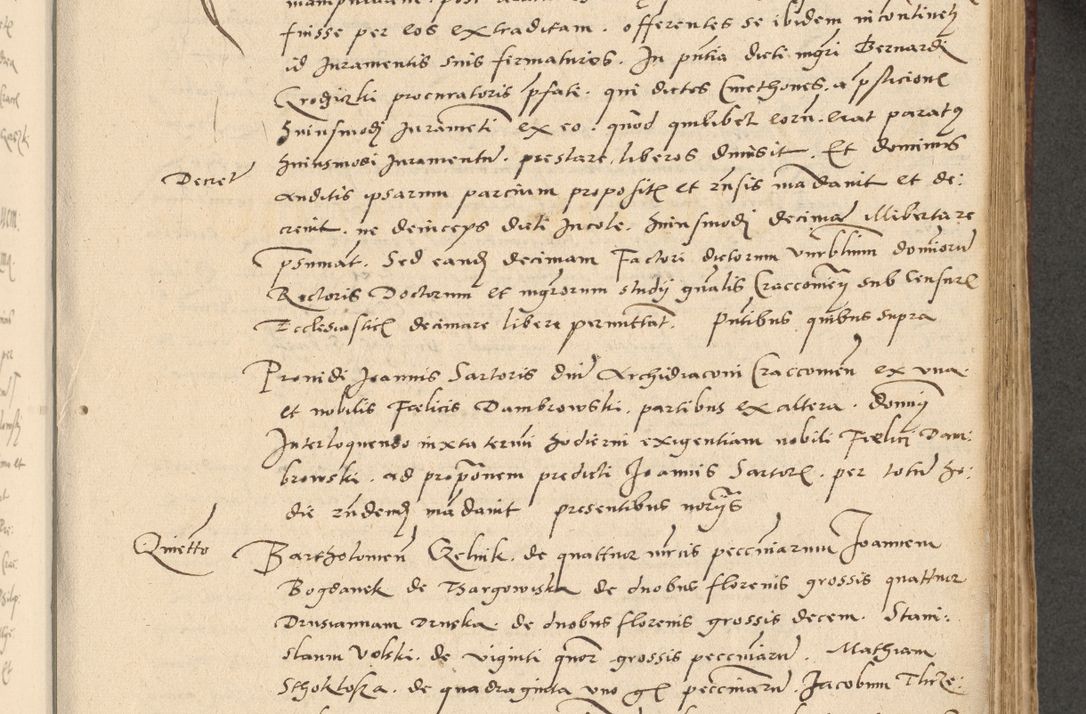 fuisse per eos extraditam. offerentes se ibidem incontinen
id Juramentis suis firmaturos. In pntia dicti mgri Bernardi
Grodziczki procuratoris pfati. qui dictos Cmethones. a psticione
huiusmodi Jurameti ex eo. quod quilibet eorum. erat paratus
huiusmodi Juramentum. prestare, liberos dimisit. Et dominus
Decret
auditis ipsarum parcium propositis et rnsis mandavit et de:
crevit. ne deinceps dicti Incole. huiusmodi decimam illibertare
psumat. Sed eandem decimam Factori dictorum venerabilium dominorum
Rectoris Doctorum et mgrorum studij gnalis Craccovien sub Censuris
Ecclesiasticis decimare libere permittat. Pntibus quibus supra
Providi Joannis Sartoris dni Archidiaconi Craccovien ex una.
et nobilis Foelicis Dambrowski. partibus ex altera. dominus
Interloquendo iuxta termini hodierni exigentiam nobili Foelici Dam:
browski. ad proponem predicti Joannis Sartoris. per totum ho:
die rndendum mandavit presentibus norijs
Quietto
Bartholomeum Czelnik. de quattuor mrcis pecuniarum Joannem
Bogdanek de Thargowisko de duobus florenis grossis quattuor
Drusiannam Druska. de duobus florenis grossis decem. Stani:
slaum Volski. de viginti quatuor grossis pecuniarum. Mathiam
de quadraginta uno gs pecuniarum. Jacobum